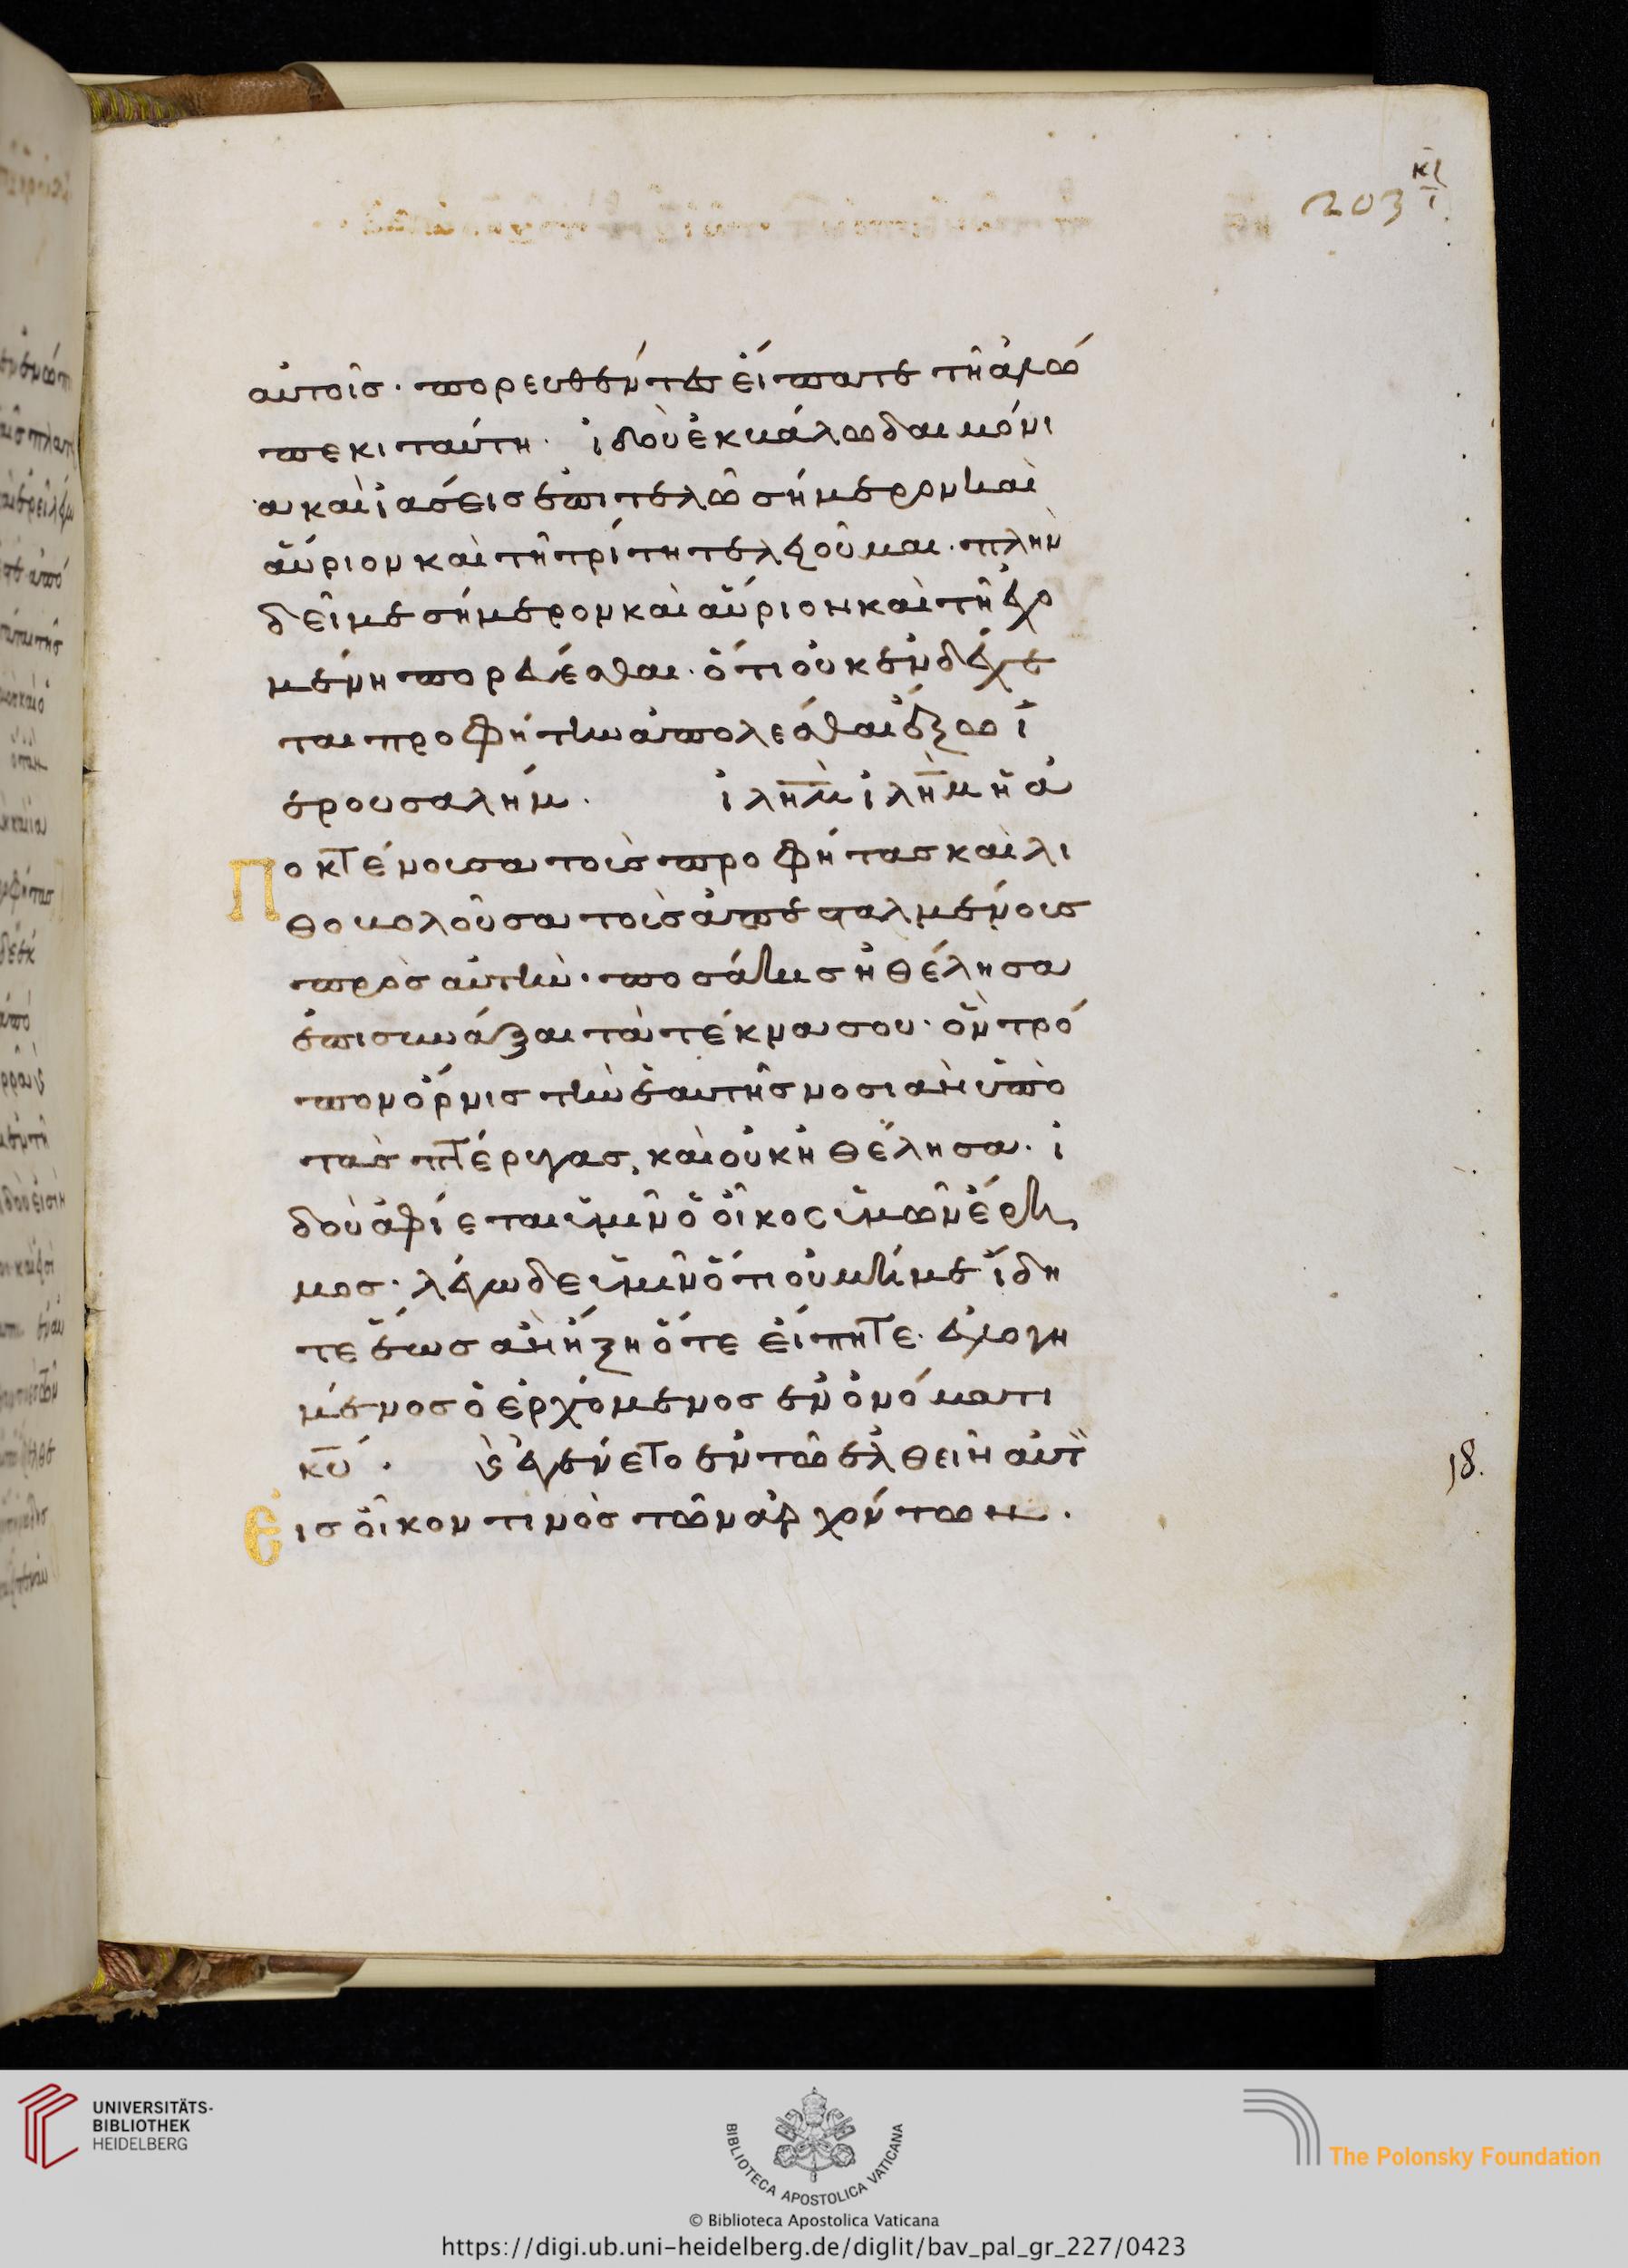 203
αὐτοῖς· πορευθέντες εἴπατε τῆ ἀλώ
πεκι ταύτη· ἰδοὺ ἐκβάλω δαιμόνι
α καὶ ἰάσεις ἐπιτελῶ σήμερον καὶ
αὔριον καὶ τῆ τρίτη τελειοῦμαι· πλὴν
δεῖ με σήμερον καὶ αὔριον καὶ τῆ ἐχο
μένη πορεύεσθαι· ὅτι οὐκ ἐνδέχε
ται προφήτην ἀπολέσθαι ἔξω ἱ
ερουσαλήμ. ἱλὴ̅μ̅ ἱλὴ̅μ̅ ἡ ἀ
Ποκτένουσα τοὺς προφήτας καὶ λι
θοβολοῦσα τοὺς ἀπεσταλμένους
πρὸς αὐτὴν· ποσάκις ἠθέλησα
ἐπισυνάξαι τὰ τέκνα σου· ὃν τρό
πον ὄρνις τὴν ἑαυτῆς νοσιὰν ὑπὸ
τὰς πτέρυγας, καὶ οὐκ ἠθέλησα. ἰ
δοὺ ἀφίεται ὑμῖν ὁ οἶκος ὑμῶν ἔρη
μος· λέγω δὲ ὑμῖν ὅτι οὐ μή με ἴδη
τε ἕως ἂν ἥξη ὅτε εἴπητε· εὐλογη
μένος ὁ ἐρχόμενος ἐν ὀνόματι
κ̅υ̅. ϗ ἐγένετο ἐν τῶ ἐλθεῖν αὐτ
Εἰς οἶκον τινὸς τῶν ἀρχόντων.
18.
UNIVERSITÄTS-
BIBLIOTHEK
HEIDELBERG
BIBLIOTECA APOSTOLICA VATICANA
© Biblioteca Apostolica Vaticana
The Polonsky Foundation
https://digi.ub.uni-heidelberg.de/diglit/bav_pal_gr_227/0423